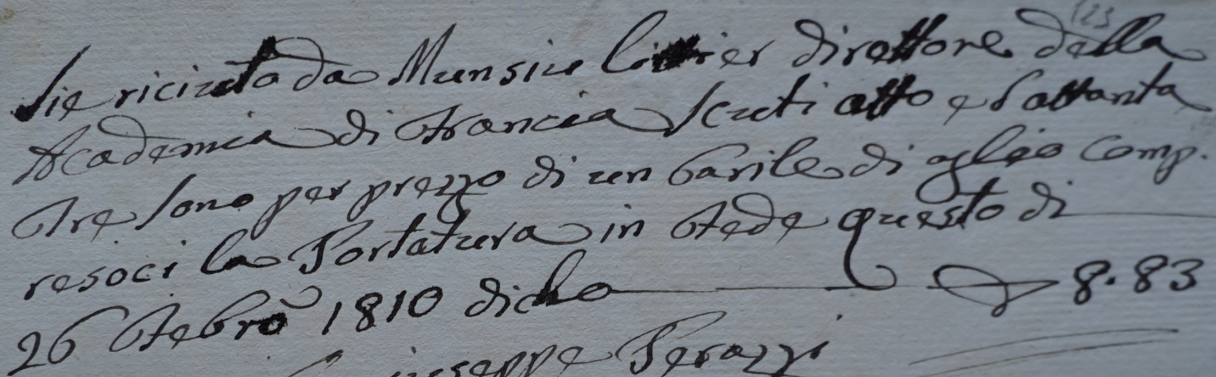 123
Sie riciuto da Munsiu Litrier direttore della
Academia di Francia Scuti otto e S ottanta
Tre sono per prezzo di un barile di oglio Comp.
resoci la Portatura in Fede questo di
26 Febro 1810 dicho 8.83
Giuseppe Perazzi